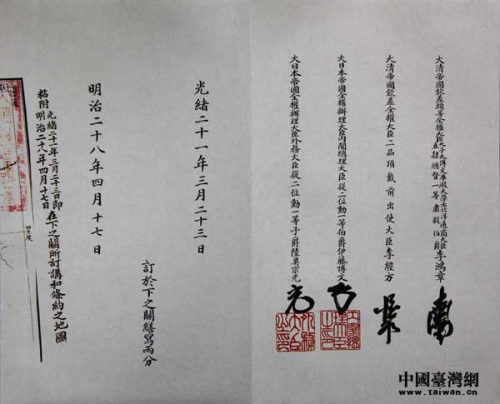 大清帝國欽差頭等全權大臣太子太傅文華殿大學士北洋通商大臣直隸總督一等肅毅伯爵李鴻章
大清帝國欽差全權大臣二品頂戴前出使大臣李經方
大日本帝國全權辦理大臣內閣總理大臣從二位勳一等伯爵伊藤博文
大日本帝國全權辦理大臣外務大臣從二位勳一等子爵陸奧宗光
光緒二十一年三月二十三日
訂於下之關繕寫兩分
明治二十八年四月十七日
粘附光緒二十一年三月二十三日即
明治二十八年四月十七日在下之關所訂講和條約之地圖
中國臺灣網
www.taiwan.cn